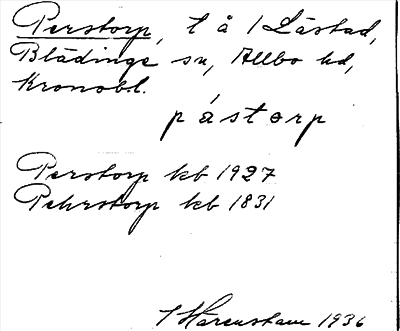 Perstorp, t å 1 Låstad,
Blädinge sn, Allbo hd,
Kronobl.
påstorp
Perstorp kb 1927
Pehrstorp kb 1831
1936